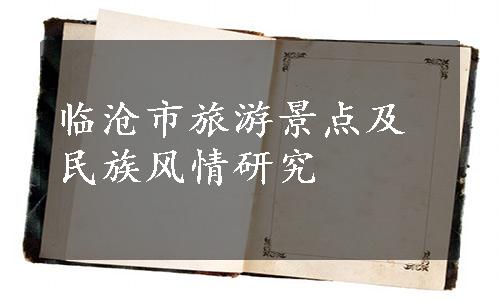 临沧市旅游景点及
民族风情研究